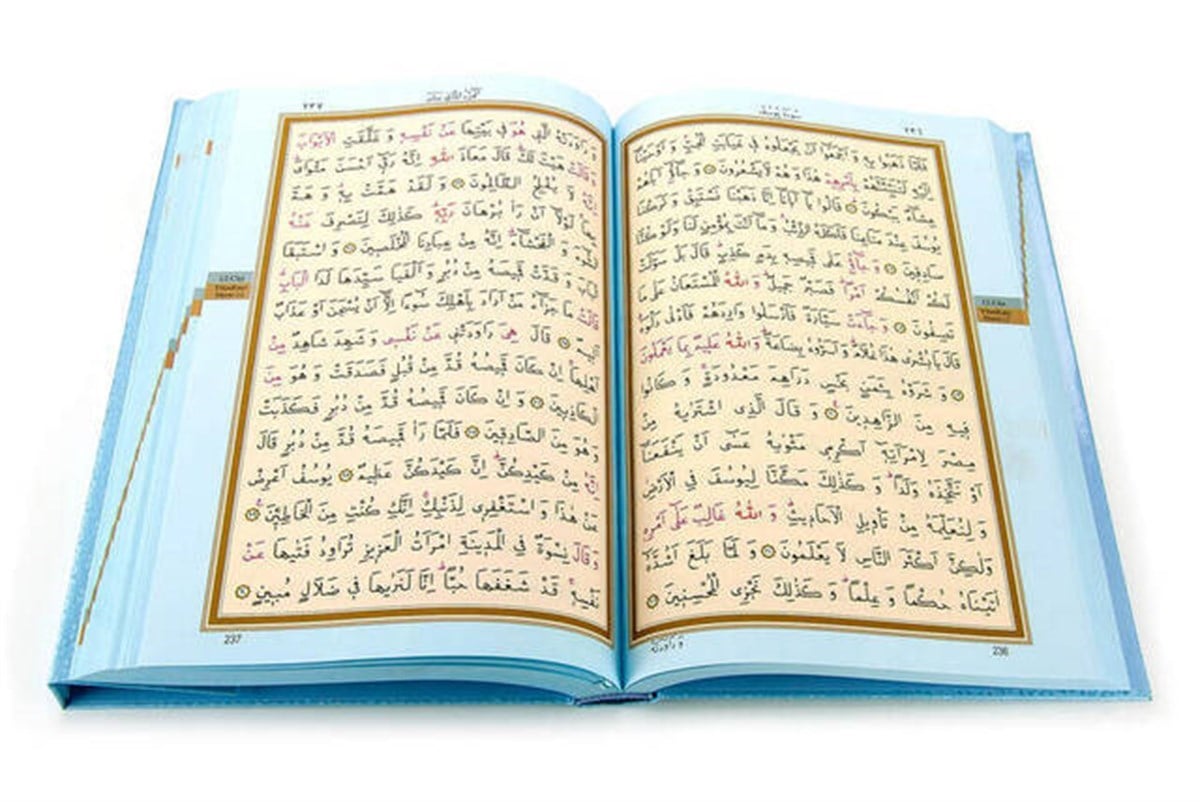 ٢٣٦
سورة يوسف
فَلَمَّا ذَهَبُوا بِهِ وَاَجْمَعُوا اَنْ يَجْعَلُوهُ فِي غَيَابَتِ الْجُبِّ وَاَوْحَيْنَا
اِلَيْهِ لَتُنَبِّئَنَّهُمْ بِاَمْرِهِمْ هٰذَا وَهُمْ لَا يَشْعُرُونَ وَجَاؤُ اَبَاهُمْ
عِشَاءً يَبْكُونَ قَالُوا يَا اَبَانَا اِنَّا ذَهَبْنَا نَسْتَبِقُ وَتَرَكْنَا
يُوسُفَ عِنْدَ مَتَاعِنَا فَاَكَلَهُ الذِّئْبُ وَمَا اَنْتَ بِمُؤْمِنٍ لَنَا وَلَوْ كُنَّا
صَادِقِينَ وَجَاؤُ عَلٰى قَمِيصِهِ بِدَمٍ كَذِبٍ قَالَ بَلْ سَوَّلَتْ
لَكُمْ اَنْفُسُكُمْ اَمْرًا فَصَبْرٌ جَمِيلٌ وَاللّٰهُ الْمُسْتَعَانُ عَلٰى مَا
تَصِفُونَ وَجَاءَتْ سَيَّارَةٌ فَاَرْسَلُوا وَارِدَهُمْ فَاَدْلٰى دَلْوَهُ
قَالَ يَا بُشْرٰى هٰذَا غُلَامٌ وَاَسَرُّوهُ بِضَاعَةً وَاللّٰهُ عَلِيمٌ بِمَا يَعْمَلُونَ
وَشَرَوْهُ بِثَمَنٍ بَخْسٍ دَرَاهِمَ مَعْدُودَةٍ وَكَانُوا
فِيهِ مِنَ الزَّاهِدِينَ وَقَالَ الَّذِي اشْتَرٰيهُ مِنْ
مِصْرَ لِامْرَاَتِهِ اَكْرِمِي مَثْوٰيهُ عَسٰى اَنْ يَنْفَعَنَا
اَوْ نَتَّخِذَهُ وَلَدًا وَكَذٰلِكَ مَكَّنَّا لِيُوسُفَ فِي الْاَرْضِ
وَلِنُعَلِّمَهُ مِنْ تَأْوِيلِ الْاَحَادِيثِ وَاللّٰهُ غَالِبٌ عَلٰى اَمْرِهِ
وَلٰكِنَّ اَكْثَرَ النَّاسِ لَا يَعْلَمُونَ وَلَمَّا بَلَغَ اَشُدَّهُ
اٰتَيْنَاهُ حُكْمًا وَعِلْمًا وَكَذٰلِكَ نَجْزِي الْمُحْسِنِينَ
وَرَاوَدَتْهُ
236
٢٣٧
وَرَاوَدَتْهُ الَّتِي هُوَ فِي بَيْتِهَا عَنْ نَفْسِهِ وَغَلَّقَتِ الْاَبْوَابَ
وَقَالَتْ هَيْتَ لَكَ قَالَ مَعَاذَ اللّٰهِ اِنَّهُ رَبِّي اَحْسَنَ مَثْوَايَ
اِنَّهُ لَا يُفْلِحُ الظَّالِمُونَ وَلَقَدْ هَمَّتْ بِهِ وَهَمَّ
بِهَا لَوْلَا اَنْ رَاٰ بُرْهَانَ رَبِّهِ كَذٰلِكَ لِنَصْرِفَ عَنْهُ
السُّوءَ وَالْفَحْشَاءَ اِنَّهُ مِنْ عِبَادِنَا الْمُخْلَصِينَ وَاسْتَبَقَا
الْبَابَ وَقَدَّتْ قَمِيصَهُ مِنْ دُبُرٍ وَاَلْفَيَا سَيِّدَهَا لَدَا الْبَابِ
قَالَتْ مَا جَزَاءُ مَنْ اَرَادَ بِاَهْلِكَ سُوءًا اِلَّا اَنْ يُسْجَنَ اَوْ عَذَابٌ
اَلِيمٌ قَالَ هِيَ رَاوَدَتْنِي عَنْ نَفْسِي وَشَهِدَ شَاهِدٌ مِنْ
اَهْلِهَا اِنْ كَانَ قَمِيصُهُ قُدَّ مِنْ قُبُلٍ فَصَدَقَتْ وَهُوَ مِنَ
الْكَاذِبِينَ وَاِنْ كَانَ قَمِيصُهُ قُدَّ مِنْ دُبُرٍ فَكَذَبَتْ
وَهُوَ مِنَ الصَّادِقِينَ فَلَمَّا رَاٰ قَمِيصَهُ قُدَّ مِنْ دُبُرٍ قَالَ
اِنَّهُ مِنْ كَيْدِكُنَّ اِنَّ كَيْدَكُنَّ عَظِيمٌ يُوسُفُ اَعْرِضْ
عَنْ هٰذَا وَاسْتَغْفِرِي لِذَنْبِكِ اِنَّكِ كُنْتِ مِنَ الْخَاطِـِٔينَ
وَقَالَ نِسْوَةٌ فِي الْمَدِينَةِ امْرَاَتُ الْعَزِيزِ تُرَاوِدُ فَتٰيهَا عَنْ
نَفْسِهِ قَدْ شَغَفَهَا حُبًّا اِنَّا لَنَرٰيهَا فِي ضَلَالٍ مُبِينٍ
237